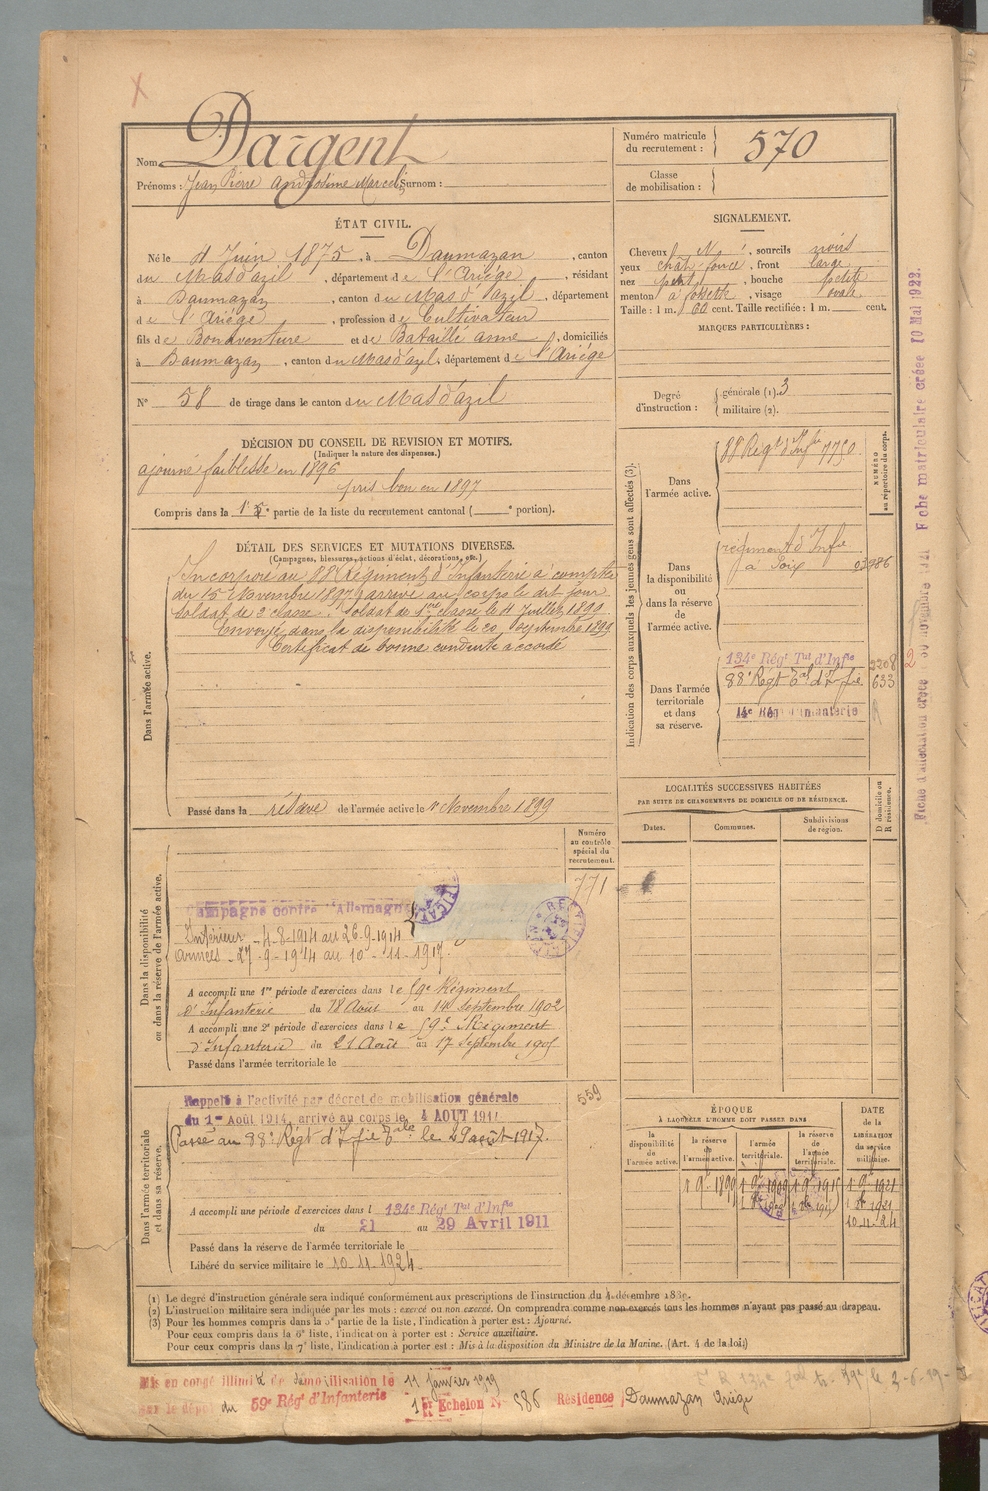 Nom Dargent
Prénoms : Jean Pierre Marcel Surnom :
Numéro matricule du recrutement : 570
Classe de mobilisation :
ÉTAT CIVIL.
Né le 4 Juin 1875, à Daumazan, canton
du Mas d'azil, département de l'Ariège, résidant
à Daumazan, canton du Mas d'Azil, département
de l'Ariège, profession de Cultivateur
fils de Bonaventure et de Bataillé anne, domiciliés
à Daumazan, canton du Mas d'azil, département de l'Ariège
N° 58 de tirage dans le canton du Mas d'azil
SIGNALEMENT.
Cheveux N, sourcils noirs
yeux chât. foncé, front large
nez, bouche petite
menton à fossette, visage ovale
Taille : 1 m. 60 cent. Taille rectifiée : 1 m. cent.
MARQUES PARTICULIÈRES :
Degré d'instruction : générale (1). 3
militaire (2).
DÉCISION DU CONSEIL DE REVISION ET MOTIFS.
(Indiquer la nature des dispenses.)
ajourné faiblesse en 1896
pris bon en 1897
Compris dans la 1e partie de la liste du recrutement cantonal ( e portion).
DÉTAIL DES SERVICES ET MUTATIONS DIVERSES.
(Campagnes, blessures, actions d'éclat, décorations, etc.)
Dans l'armée active.
Incorporé au 88e Régiment d'Infanterie à compter
du 15 Novembre 1897, arrivé au corps le dit jour
Soldat de 2e classe. Soldat de 1ère classe le 4 Juillet 1899
Envoyé dans la disponibilité le 20 septembre 1899
Certificat de bonne conduite accordé
Passé dans la réserve de l'armée active le 1 Novembre 1899
Indication des corps auxquels les jeunes gens sont affectés (3).
NUMÉRO au répertoire du corps.
Dans l'armée active.
88 Régt d'Infie 7750
Dans la disponibilité ou dans la réserve de l'armée active.
régiment d'Infie
à Foix 986
Dans l'armée territoriale et dans sa réserve.
134e Régt Tal d'Infie 2208
88e Régt Tal d'Infie 633
14e Régt d'Infanterie
LOCALITÉS SUCCESSIVES HABITÉES
PAR SUITE DE CHANGEMENTS DE DOMICILE OU DE RÉSIDENCE.
Dates.
Communes.
Subdivisions de région.
D domicile ou R résidence.
Dans la disponibilité ou dans la réserve de l'armée active.
Numéro au contrôle spécial du recrutement.
771
Campagne contre l'Allemagne
Intérieur - 4-8-1914 au 26-9-1914
armées - 27-9-1914 au 10-11-1917.
A accompli une 1re période d'exercices dans le 59e Régiment
d'Infanterie du 18 Août au 14 septembre 1902
A accompli une 2e période d'exercices dans le 59e Régiment
d'Infanterie du 21 Août au 17 septembre 1905
Passé dans l'armée territoriale le
Dans l'armée territoriale et dans sa réserve.
559
Rappelé à l'activité par décret de mobilisation générale
du 1er Août 1914, arrivé au corps le 4 AOUT 1914
Passé au 88e Régt d'Infie Tale le 29 août 1917.
A accompli une période d'exercices dans l 134e Régt Tal d'Infie
du 21 au 29 Avril 1911
Passé dans la réserve de l'armée territoriale le
Libéré du service militaire le 10-11-1924
ÉPOQUE
À LAQUELLE L'HOMME DOIT PASSER DANS
la disponibilité de l'armée active.
la réserve de l'armée active.
l'armée territoriale.
la réserve de l'armée territoriale.
DATE de la LIBÉRATION du service militaire.
1 9e 1899
1 9e 1909
1 9e 1915
1 9e 1921
10-11-24
(1) Le degré d'instruction générale sera indiqué conformément aux prescriptions de l'instruction du 4 décembre 1889.
(2) L'instruction militaire sera indiquée par les mots : exercé ou non exercé. On comprendra comme non exercés tous les hommes n'ayant pas passé au drapeau.
(3) Pour les hommes compris dans la 5e partie de la liste, l'indication à porter est : Ajourné.
Pour ceux compris dans la 6e liste, l'indication à porter est : Service auxiliaire.
Pour ceux compris dans la 7e liste, l'indication à porter est : Mis à la disposition du Ministre de la Marine. (Art. 4 de la loi.)
Mis en congé illimité de démobilisation le 11 janvier 1919
par le dépôt du 59e Régt d'Infanterie 1er Echelon N° 586 Résidence Daumazan Ariège
Fiche matriculaire créée 10 Mai 1922.